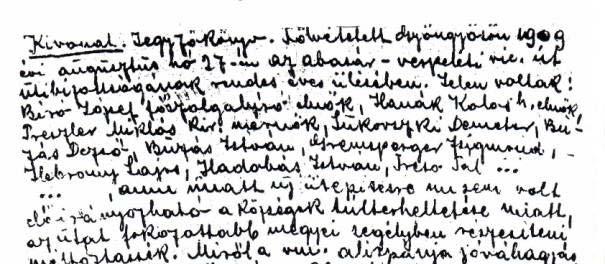 Kivonat. Jegyzőkönyv. Fölvétetett Gyöngyösön 1909
évi augusztus hó 27-én az abasár-verpeléti vic. út
útibizottságának rendes éves ülésében. Jelen voltak:
Bíró József főszolgabíró elnök, Hanák Kolos h. elnök,
Prexler Miklós kir. mérnök, Sukovszki Demeter, Bu-
zás Dezső, Buzás István, Gremsperger Zsigmond,
Hebrony Lajos, Hadobás István, Pál ...
... miatt új útépítésre mi sem volt
előirányozható a községek túlterheltetése miatt,
az utat fokozottabb megyei segélyben részesíteni
méltóztassék. Miről a vm. alispánja jóváhagyás